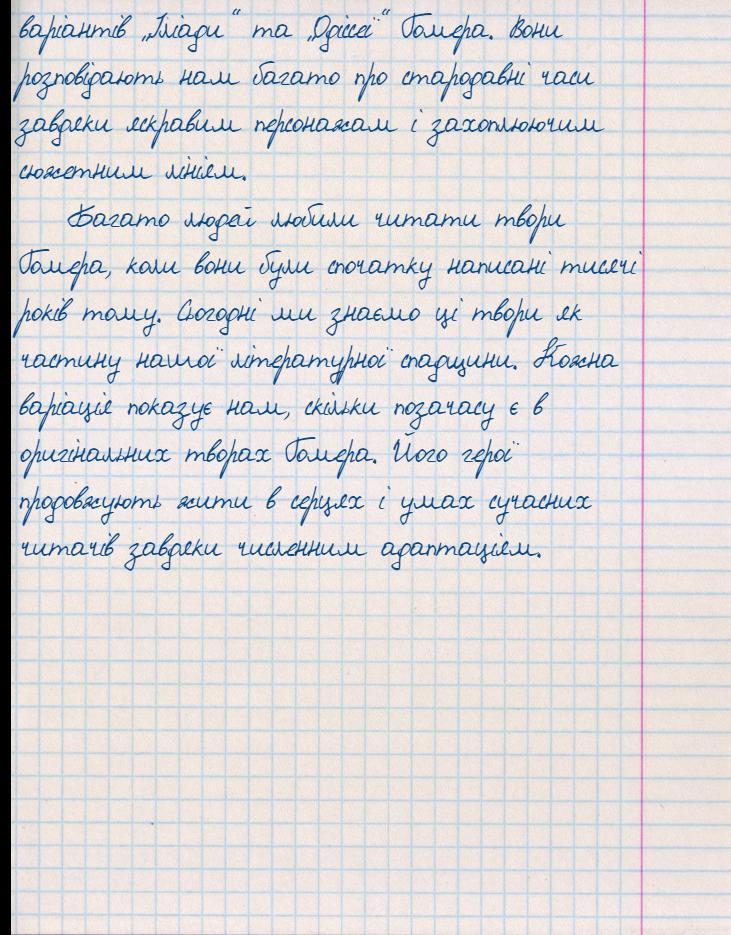 варіантів „Іліади“ та „Одіссеї“ Гомера. Вони
розповідають нам багато про стародавні часи
завдяки яскравим персонажам і захоплюючим
сюжетним лініям.
Багато людей любили читати твори
Гомера, коли вони були спочатку написані тисячі
років тому. Сьогодні ми знаємо ці твори як
частину нашої літературної спадщини. Кожна
варіація показує нам, скільки позачасу є в
оригінальних творах Гомера. Його герої
продовжують жити в серцях і умах сучасних
читачів завдяки численним адаптаціям.